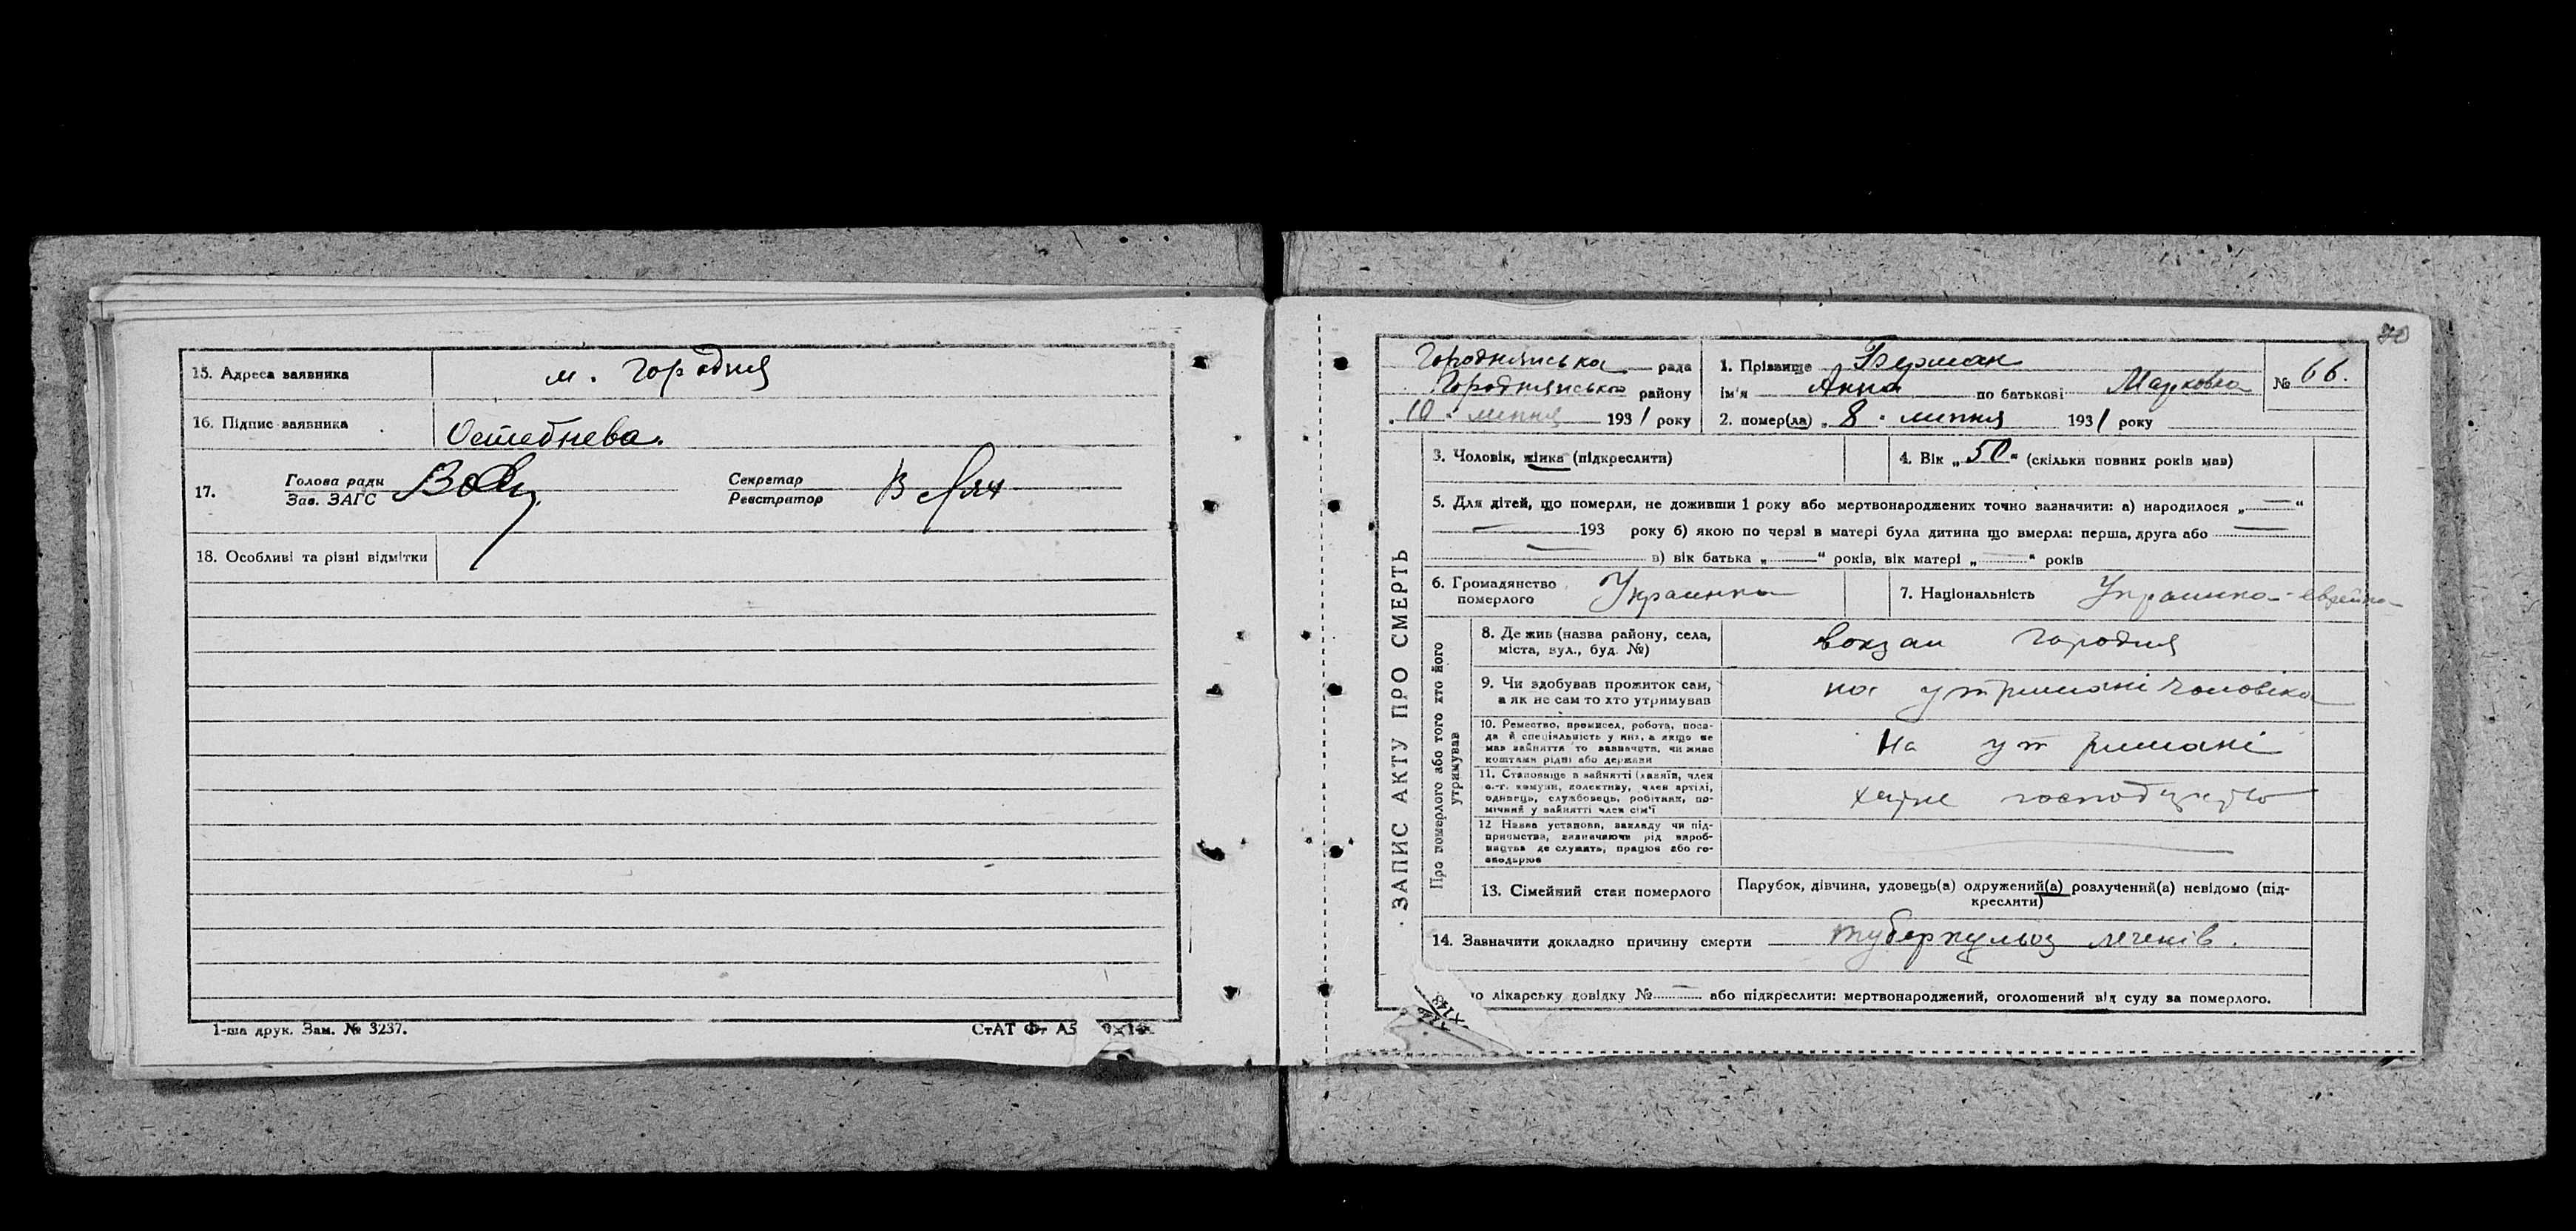 15. Адреса заявника м. Городня
16. Підпис заявника Остебнева.
17. Голова ради
Зав. ЗАГС
Секретар
Реєстратор
18. Особливі та різні відмітки
1-ша друк. Зам. № 3237.
СтАТ Фт А5
ЗАПИС АКТУ ПРО СМЕРТЬ
Городнянська рада
Городнянського району
„10“ липня 1931 року
1. Прізвище Берман
ім'я Анна по батькові Марковна
№ 66.
2. помер(ла) „8“ липня 1931 року
3. Чоловік, жінка (підкреслити)
4. Вік „50“ (скільки повних років мав)
5. Для дітей, що померли, не доживши 1 року або мертвонароджених точно зазначити: а) народилося „—“
— 193 року б) якою по черзі в матері була дитина що вмерла: перша, друга або —
— в) вік батька „—“ років, вік матері „—“ років
6. Громадянство
померлого Украинка
7. Національність Украинка - еврейка
Про померлого або того хто його
утримував
8. Де жив (назва району, села,
міста, вул., буд. №) вокзал Городня
9. Чи здобував прожиток сам,
а як не сам то хто утримував на утримані чоловіка
10. Ремество, промисел, робота, поса-
да й спеціяльність у них, а якщо не
мав зайняття то зазначити, чи живе
коштами рідні або держави На утримані
11. Становище в зайнятті (хазяїн, член
с.-г. комуни, колективу, член артілі,
одинець, службовець, робітник, по-
мічний у зайнятті член сім'ї хатне господарство
12 Назва установи, закладу чи під-
приємства, зазначаючи рід вироб-
ництва де служить, працює або го-
сподарює —
13. Сімейний стан померлого Парубок, дівчина, удовець(а) одружений(а) розлучений(а) невідомо (під-
креслити)
14. Зазначити докладно причину смерти туберкульоз легенів.
лікарську довідку № — або підкреслити: мертвонароджений, оголошений від суду за померлого.